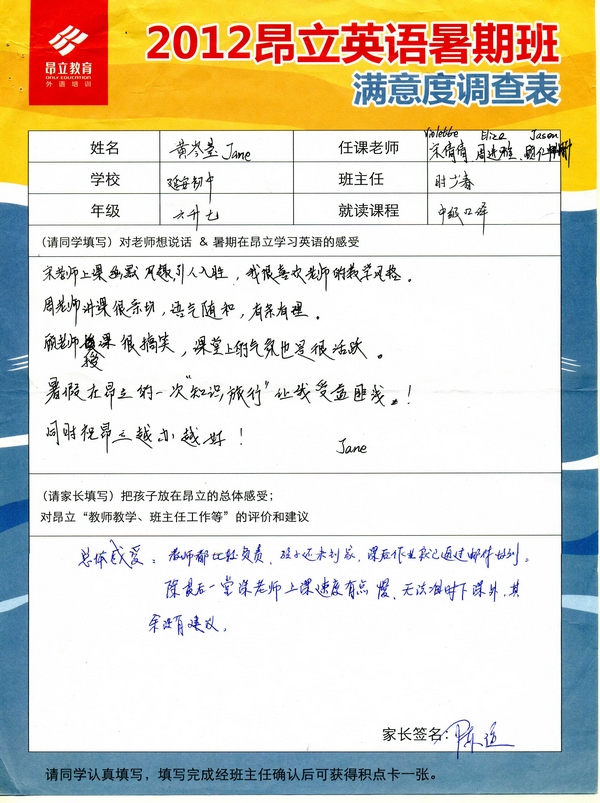 昂立教育
ONLY EDUCATION
外语培训
2012昂立英语暑期班
满意度调查表
Violette Eliza Jason
姓名 黄岑莹 Jane 任课老师 宋倩倩 周逸雅
学校 延安初中 班主任 时少春
年级 六升七 就读课程 中级口译
(请同学填写)对老师想说话 & 暑期在昂立学习英语的感受
宋老师上课幽默风趣,引人入胜,我很喜欢老师的教学风格。
周老师讲课很亲切,语气随和,有条有理。
顾老师授课很搞笑,课堂上的气氛也是很活跃。
暑假在昂立的一次"知识旅行"让我受益匪浅!
同时祝昂立越办越好!
Jane
(请家长填写)把孩子放在昂立的总体感受;
对昂立“教师教学、班主任工作等”的评价和建议
总体感受:老师都比较负责,孩子还未到家,课后作业就已通过邮件收到。
除最后一堂课老师上课速度有点慢,无法准时下课外,其
余没有建议。
家长签名:陈
请同学认真填写,填写完成经班主任确认后可获得积点卡一张。